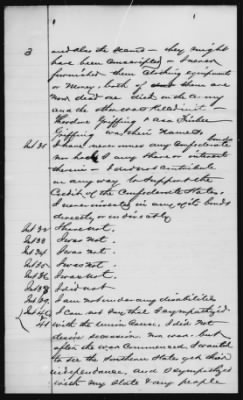 3
under the same — they might
have been Conscripted — I never
furnished them Clothing equipments
or Money, both of them are
now dead one died in the army
and the other was Killed in it
Theodore Griffing & Asa Fisher
Griffing was their Names.
Int 31 I have never owned any Confederate bonds
nor had I any share or interest
therein — I did not Contribute
in any way to Support the
Credit of the Confederate States.
I never invested in any of its bonds
directly or indirectly
Int 32 I have not.
Int 33 I was not.
Int 34 I was not.
Int 35 I was not.
Int 36 I was not.
I did not
I am not under any disabilities
I can not say that I sympathized
41 with the union Cause, I did not
desire secession nor war. but
after the war Commenced I wanted
to see the Southern States get their
independence, and I sympathized
with my State & my people